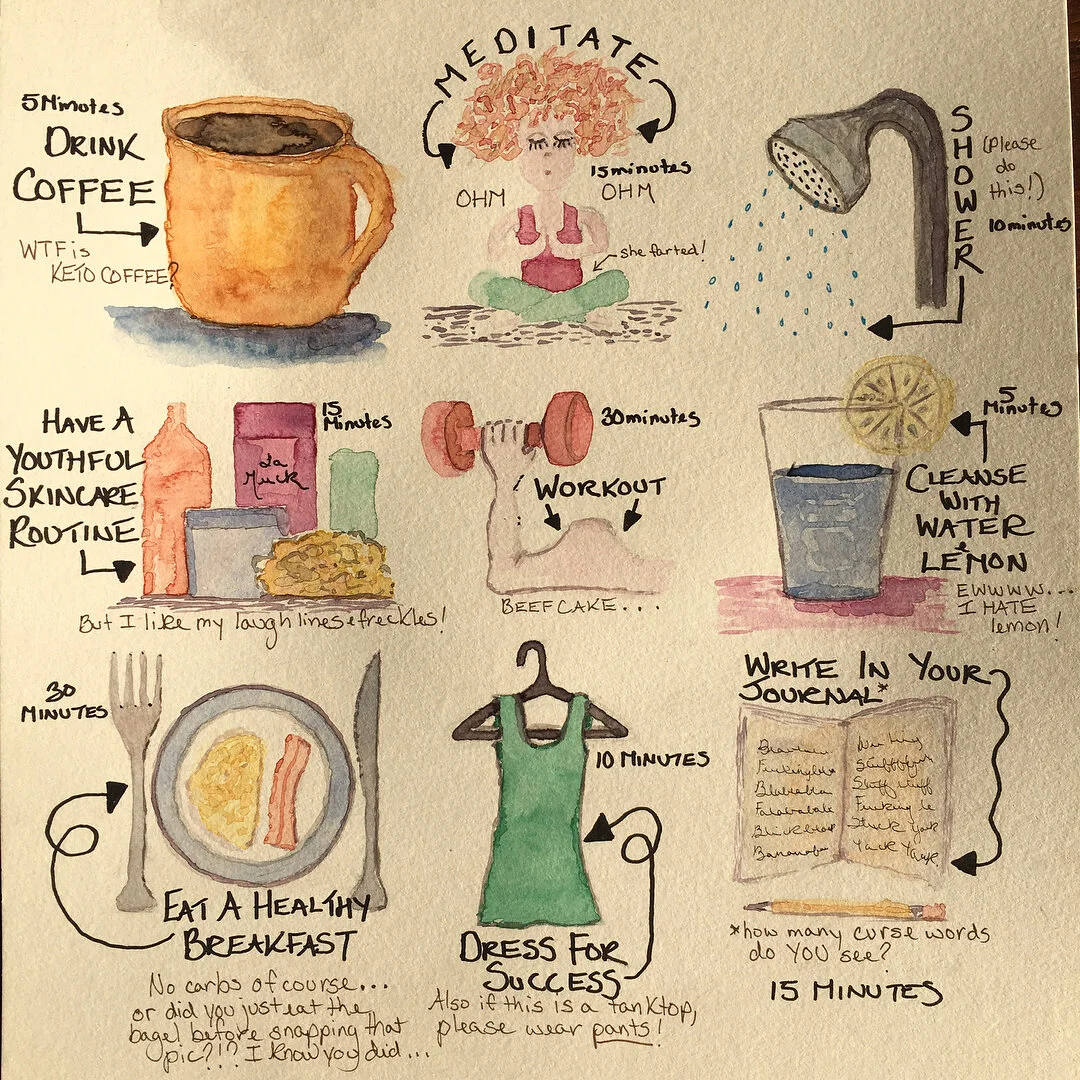 5 Minutes
DRINK
COFFEE
WTF is
KETO COFFEE?
MEDITATE
15 minutes
OHM
OHM
she farted!
SHOWER
(Please
do
this!)
10 minutes
HAVE A
YOUTHFUL
SKINCARE
ROUTINE
15
Minutes
La
Muck
But I like my laugh lines & freckles!
30 minutes
WORKOUT
BEEFCAKE...
5
Minutes
CLEANSE
WITH
WATER
&
LEMON
EWWWW...
I HATE
lemon!
30
MINUTES
EAT A HEALTHY
BREAKFAST
No carbs of course...
or did you just eat the
bagel before snapping that
pic?!? I know you did...
10 MINUTES
DRESS FOR
SUCCESS
Also if this is a tanktop,
please wear pants!
WRITE IN YOUR
JOURNAL*
Blablabla
Stuffy stuff
Yack Yack
*how many curse words
do YOU see?
15 MINUTES